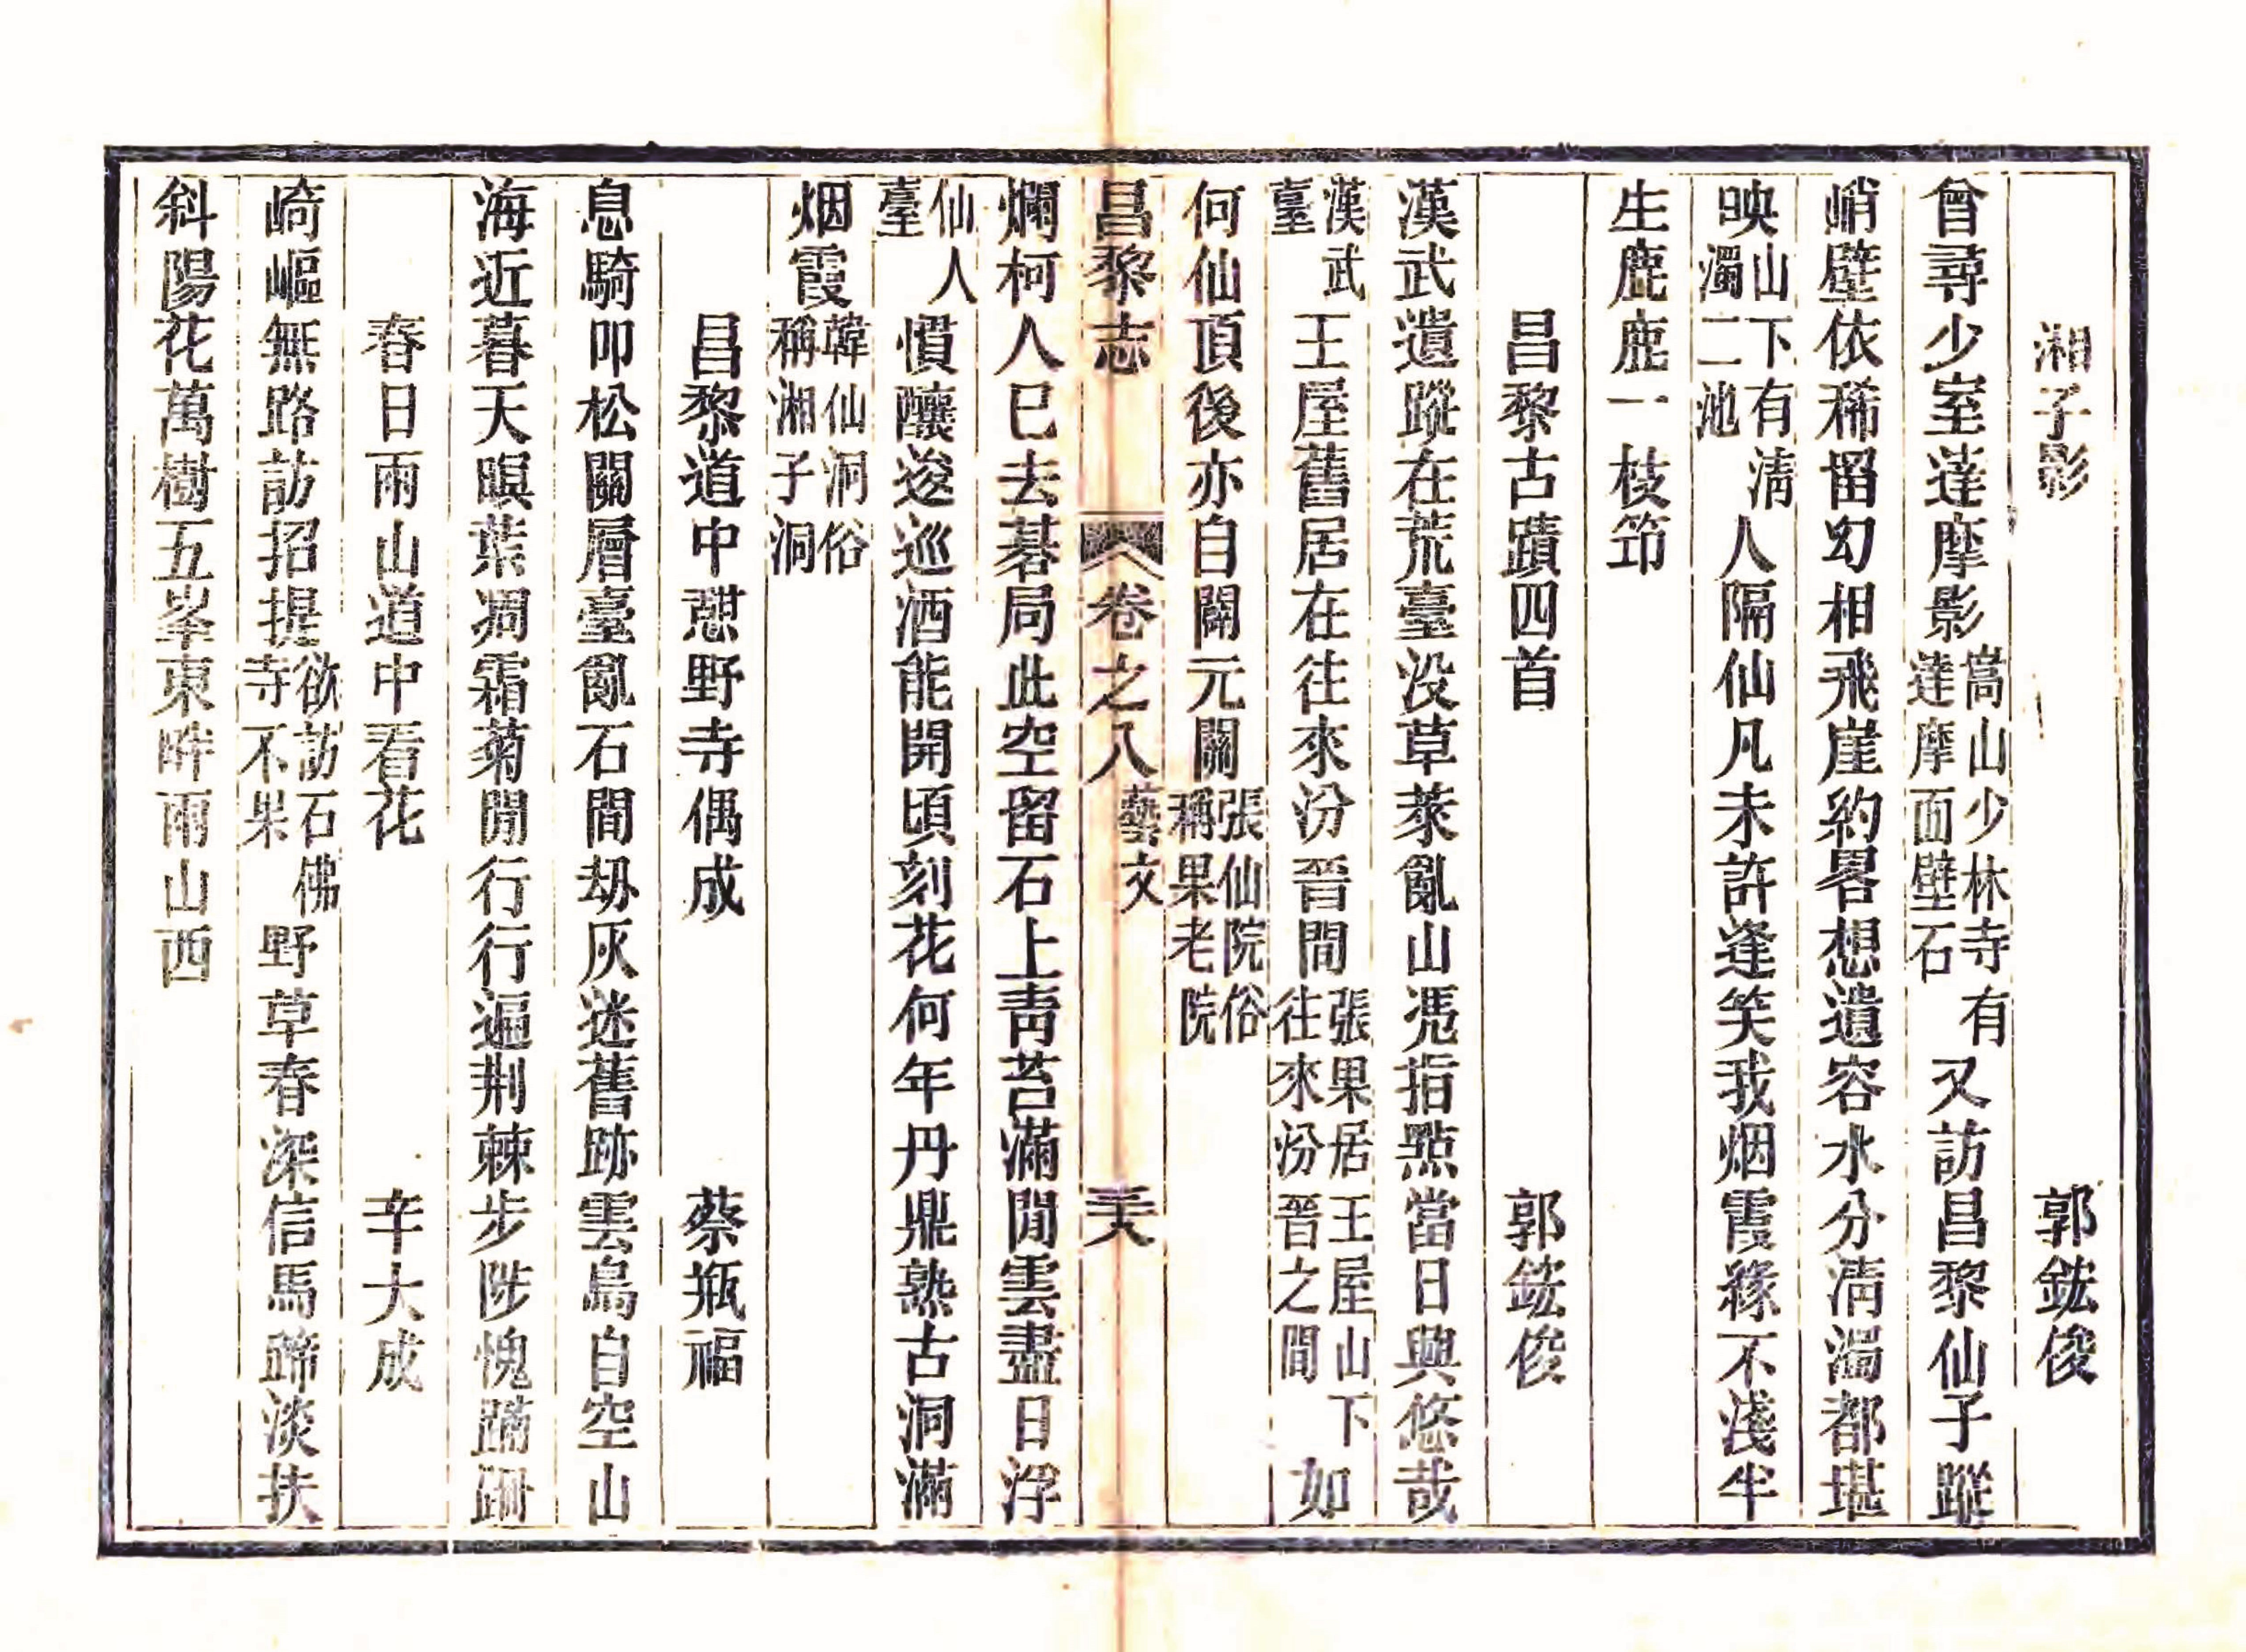 湘子影　郭鋐俊
曾尋少室達摩影嵩山少林寺有達摩面壁石又訪昌黎仙子蹤
峭壁依稀留幻相飛崖約畧想遺容水分淸濁都堪
映山下有淸濁二池人隔仙凡未許逢笑我烟霞緣不淺半
生鹿鹿一枝筇
昌黎古蹟四首　郭鋐俊
漢武遺蹤在荒臺没草萊亂山憑指點當日興悠哉
漢武臺王屋舊居在往來汾晉間張果居王屋山下往來汾晉之間如
何仙頂後亦自闢元關張仙院俗稱果老院
昌黎志　卷之八藝文　三六
爛柯人已去碁局此空留石上靑苔滿閒雲盡日浮
仙人臺慣釀逡巡酒能開頃刻花何年丹鼎熟古洞滿
烟霞韓仙洞俗稱湘子洞
昌黎道中憇野寺偶成　蔡瓶福
息騎叩松關層臺亂石間劫灰迷舊跡雲鳥自空山
海近暮天暝葉凋霜菊閒行行遍荆棘步陟愧蹣跚
春日雨山道中看花　辛大成
崎嶇無路訪招提欲訪石佛寺不果野草春深信馬蹄淡扶
斜陽花萬樹五峯東畔雨山西